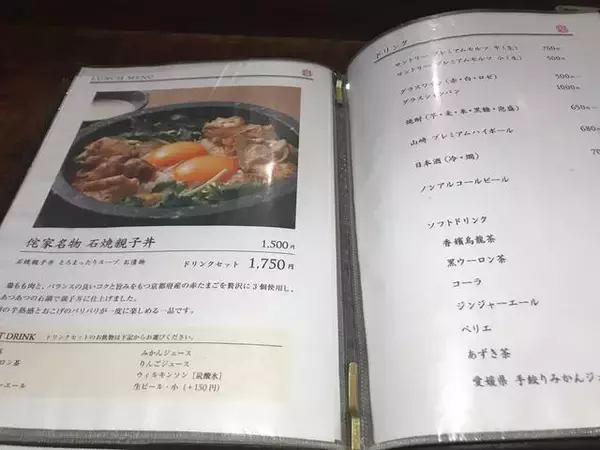 LUNCH MENU
侘家名物 石焼親子丼 1,500円
石焼親子丼 とろまったりスープ お漬物 ドリンクセット 1,750円
腿もも肉と、バランスの良いコクと旨みをもつ京都府産の赤たまごを贅沢に3個使用し、
あつあつの石鍋で親子丼に仕上げました。
の半熟感とおこげのパリパリが一度に楽しめる一品です。
DRINK ドリンクセットのお飲物は下記からお選びください。
みかんジュース
ロン茶 りんごジュース
ウィルキンソン [炭酸水]
エール 生ビール・小 (+150円)
ドリンク
サントリー プレミアムモルツ 中 (生) 750円
サントリー プレミアムモルツ 小 (生) 500円
グラスワイン (赤・白・ロゼ) 500円
グラスシャンパン 1000円
焼酎 (芋・麦・米・黒糖・泡盛) 650円
山崎 プレミアムハイボール 680
日本酒 (冷・燗)
ノンアルコールビール
ソフトドリンク
香檳烏龍茶
黒ウーロン茶
コーラ
ジンジャーエール
ペリエ
あずき茶
愛媛県 手絞りみかんジ